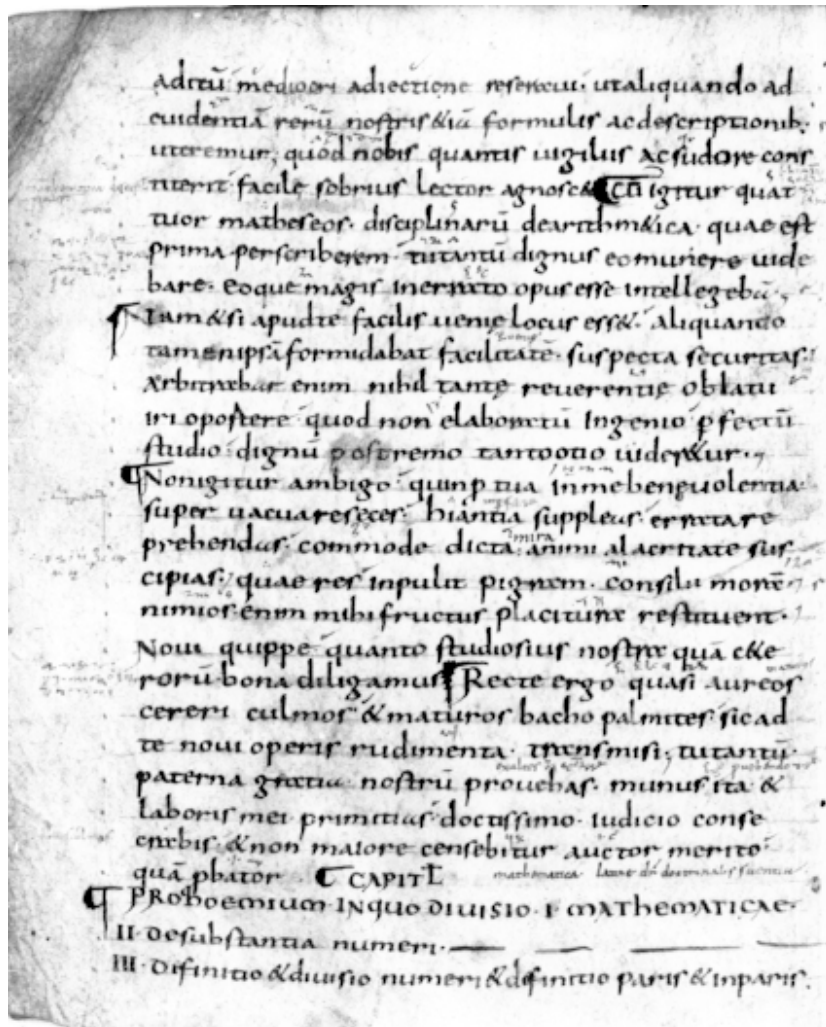 aditū mediocri adiectione reseraui. ut aliquando ad
euidentiā rerū nostris & iā formulis ac descriptionib;
uteremur, quod nobis quantis uigiliis ac sudore cons
titerit facile sobrius lector agnosc& Cū igitur quat
tuor matheseos. disciplinarū de arithm&ica. quae est
prima perscriberem. tu tantū dignus eo munere uide
bare. eoque magis inerrato opus esse intellegebā.
Nam & si apud te facilis uenię locus ess&. aliquando
tamen ipsā formidabat facilitatē. suspecta securitas.
Arbitrabar enim nihil tantę reuerentię oblatū
iri oportere quod non elaboratū ingenio pfectū
studio. dignū postremo tanto otio uider&ur.
Non igitur ambigo. quin p tua in me beneuolentia
super uacua reseces. hiantia suppleas. errata re
prehendas. commode dicta mira animi alacritate sus
cipias. quae res inpulit pigram. consilii morā
nimios enim mihi fructus placitura restituent.
Noui quippe quanto studiosius nostra quā c&e
rorū bona diligamus Recte ergo quasi aureos
cereri culmos & maturos bacho palmites. sic ad
te noui operis rudimenta. transmisi, tu tantū
paterna gratia nostrū prouehas. munus ita &
laboris mei primitias doctissimo iudicio conse
crabis. & non maiore censebitur auctor merito
quā pbator CAPITL
PROHOEMIUM IN QUO DIVISIO I MATHEMATICAE.
II De substantia numeri.
III. Difinitio & diuisio numeri & difinitio paris & inparis.